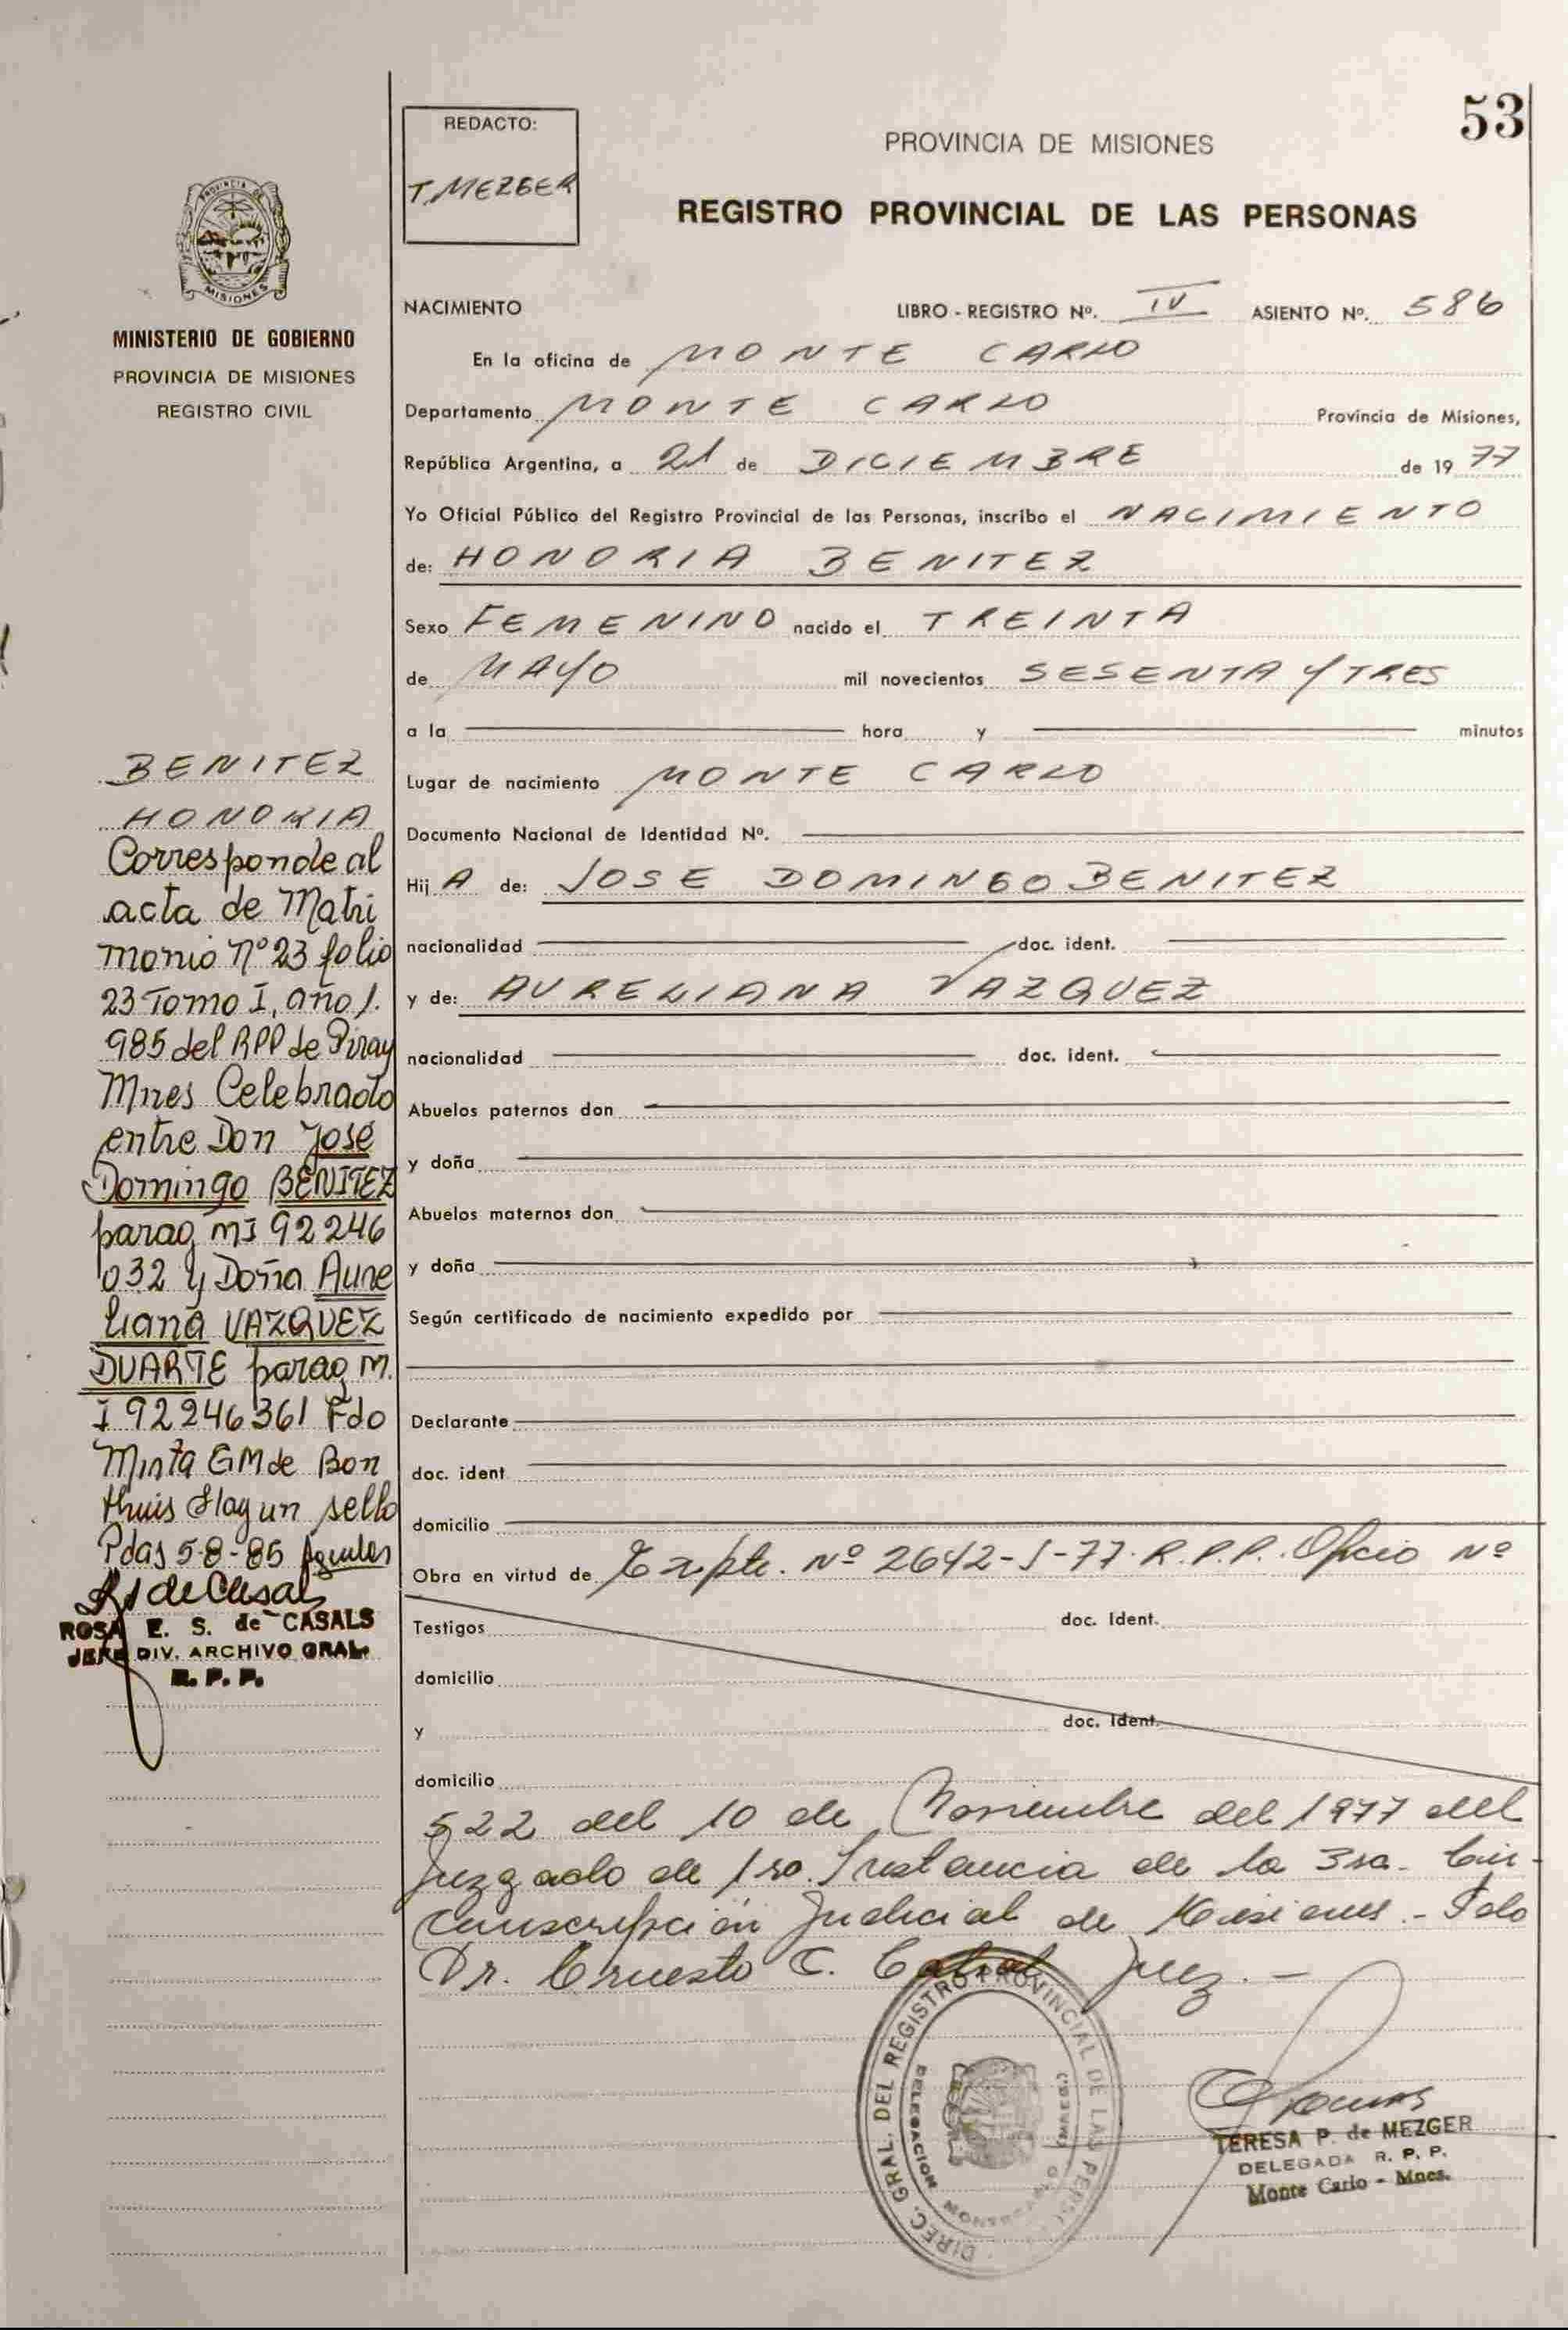 53
REDACTO:
T. MEZGER
PROVINCIA DE MISIONES
REGISTRO PROVINCIAL DE LAS PERSONAS
PROVINCIA DE
MISIONES
MINISTERIO DE GOBIERNO
PROVINCIA DE MISIONES
REGISTRO CIVIL
NACIMIENTO LIBRO - REGISTRO Nº. IV ASIENTO Nº. 586
En la oficina de MONTE CARLO
Departamento MONTE CARLO Provincia de Misiones,
República Argentina, a 21 de DICIEMBRE de 19 77
Yo Oficial Público del Registro Provincial de las Personas, inscribo el NACIMIENTO
de: HONORIA BENITEZ
Sexo FEMENINO nacido el TREINTA
de MAYO mil novecientos SESENTA Y TRES
a la hora y minutos
Lugar de nacimiento MONTE CARLO
Documento Nacional de Identidad Nº.
Hij A de: JOSE DOMINGO BENITEZ
nacionalidad doc. ident.
y de: AURELIANA VAZQUEZ
nacionalidad doc. ident.
Abuelos paternos don
y doña
Abuelos maternos don
y doña
Según certificado de nacimiento expedido por
Declarante
doc. ident
domicilio
Obra en virtud de Expte. Nº 2642-J-77. R.P.P. Oficio Nº
Testigos doc. Ident.
domicilio
y doc. Ident.
domicilio
522 del 10 de Noviembre del 1977 del
Juzgado de 1ra. Instancia de la 3ra. Cir-
cunscripción Judicial de Misiones.- Fdo
Dr. Ernesto C. Cabral Juez.-
BENITEZ
HONORIA
Corresponde al
acta de Matri
monio Nº 23 folio
23 Tomo I, año 1.
985 del RPP de Piray
Mnes Celebrado
entre Don José
Domingo BENITEZ
parag MI 92 246
032 y Doña Aure
liana VAZQUEZ
DUARTE parag M.
I 92246361 Fdo
Mirta GM de Bon
thuis Hay un sello
Pdas 5-8-85
ROSA E. S. de CASALS
JEFE DIV. ARCHIVO GRAL.
R. P. P.
DIREC. GRAL. DEL REGISTRO PROVINCIAL DE LAS PERS
DELEGACION
TERESA P. de MEZGER
DELEGADA R. P. P.
Monte Carlo - Mnes.